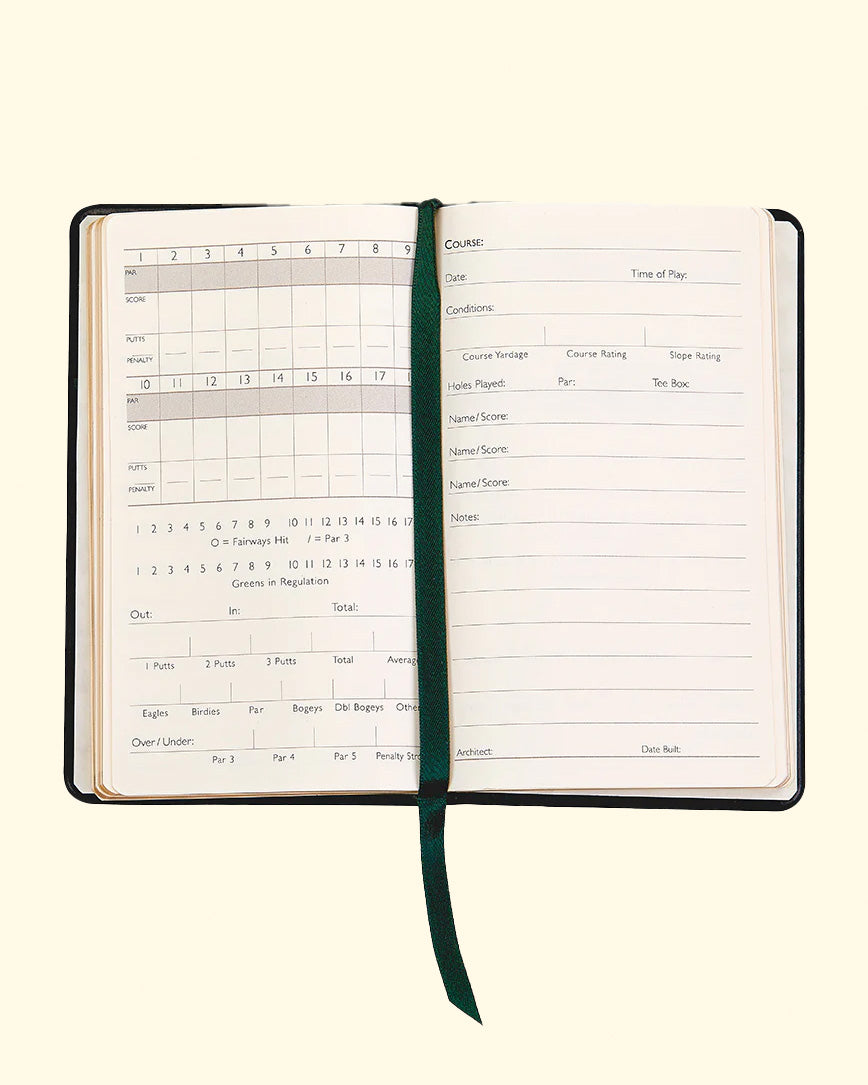 1 2 3 4 5 6 7 8 9
PAR
SCORE
PUTTS
PENALTY
10 11 12 13 14 15 16 17
PAR
SCORE
PUTTS
PENALTY
1 2 3 4 5 6 7 8 9 10 11 12 13 14 15 16 17
O = Fairways Hit / = Par 3
1 2 3 4 5 6 7 8 9 10 11 12 13 14 15 16 17
Greens in Regulation
Out: In: Total:
1 Putts 2 Putts 3 Putts Total Averag
Eagles Birdies Par Bogeys Dbl Bogeys Othe
Over/Under:
Par 3 Par 4 Par 5 Penalty Stro
COURSE:
Date: Time of Play:
Conditions:
Course Yardage Course Rating Slope Rating
Holes Played: Par: Tee Box:
Name/Score:
Name/Score:
Name/Score:
Notes:
Architect: Date Built: